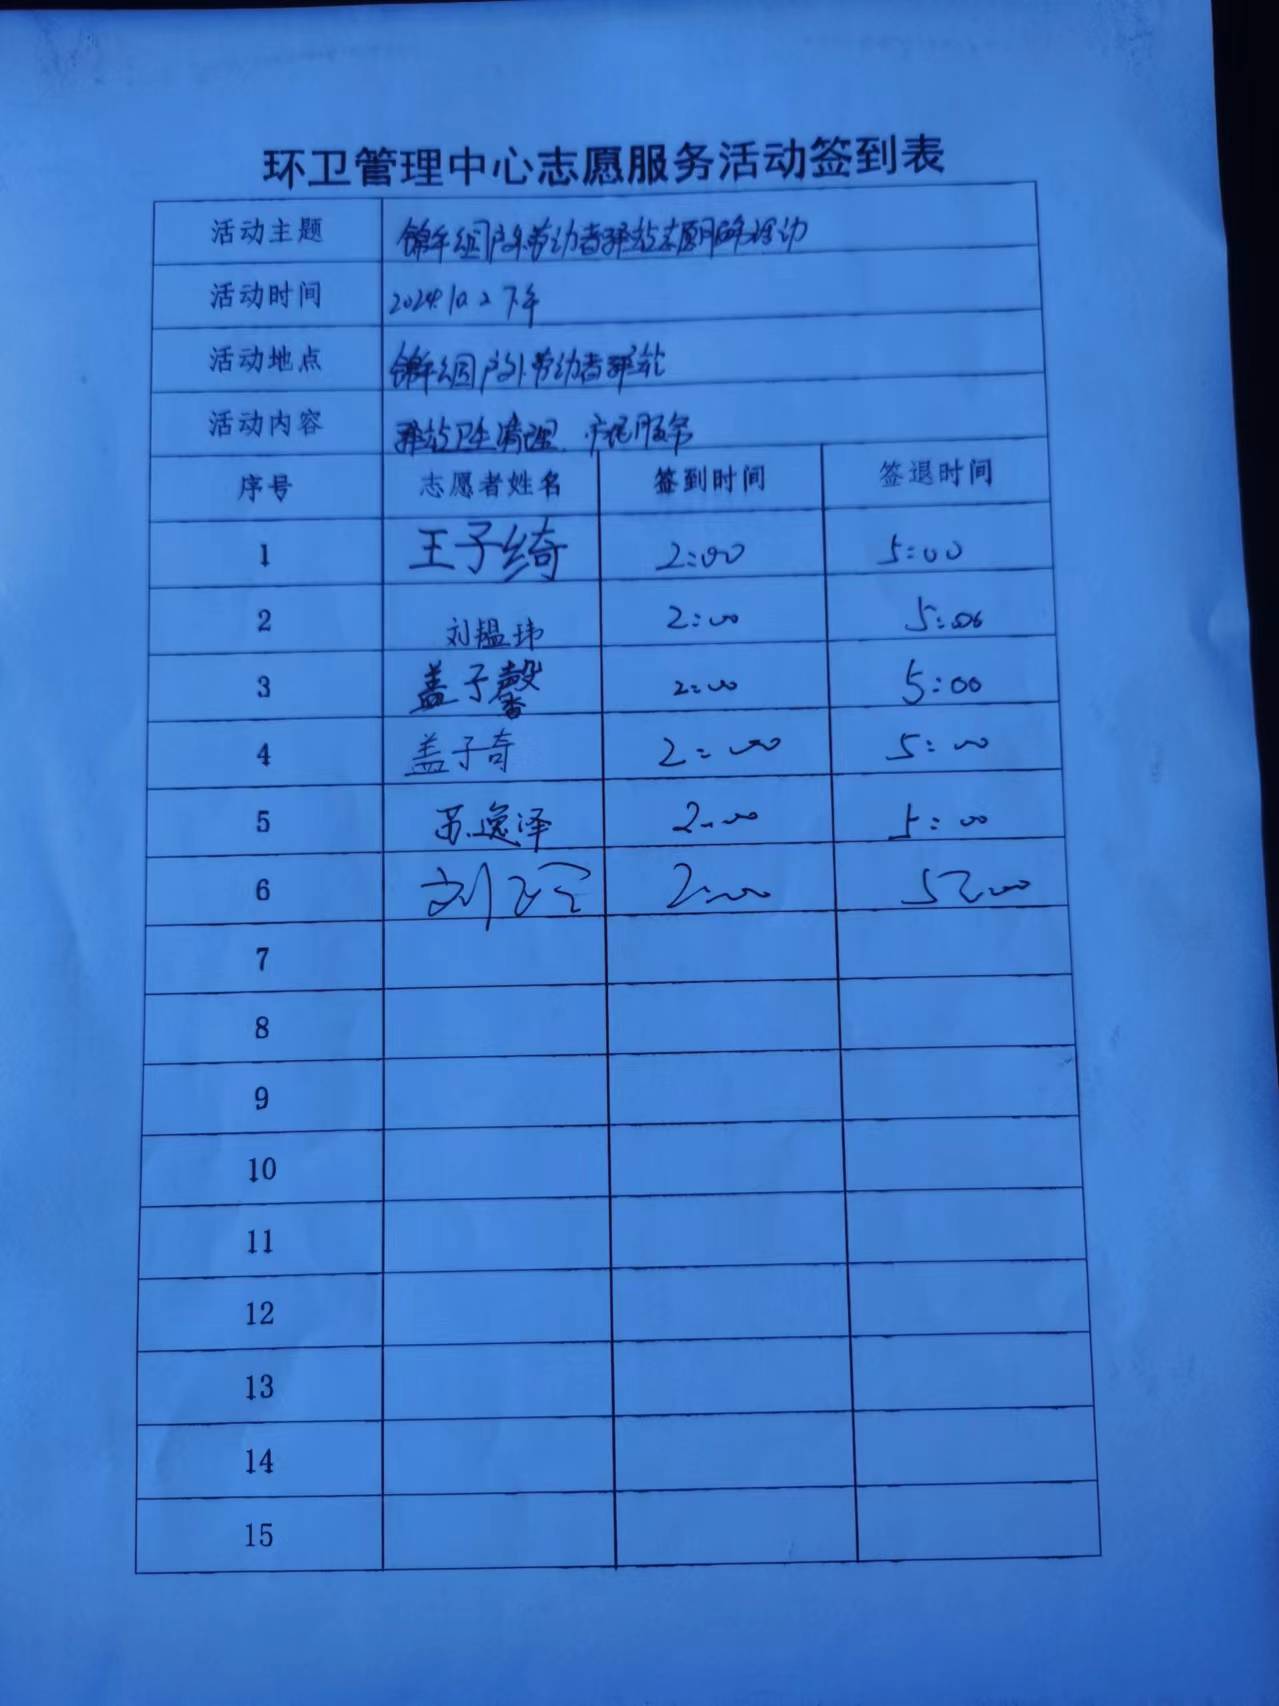 环卫管理中心志愿服务活动签到表
活动主题 户外劳动者驿站志愿服务活动
活动时间 2024.10.2下午
活动地点 户外劳动者驿站
活动内容 驿站卫生清理 便民服务
序号 志愿者姓名 签到时间 签退时间
1 王子绮 2:00 5:00
2 刘韫玮 2:00 5:00
3 盖子馨 2:00 5:00
4 盖子奇 2:00 5:00
5 苏逸泽 2:00 5:00
6 刘 2:00 5:00
7
8
9
10
11
12
13
14
15